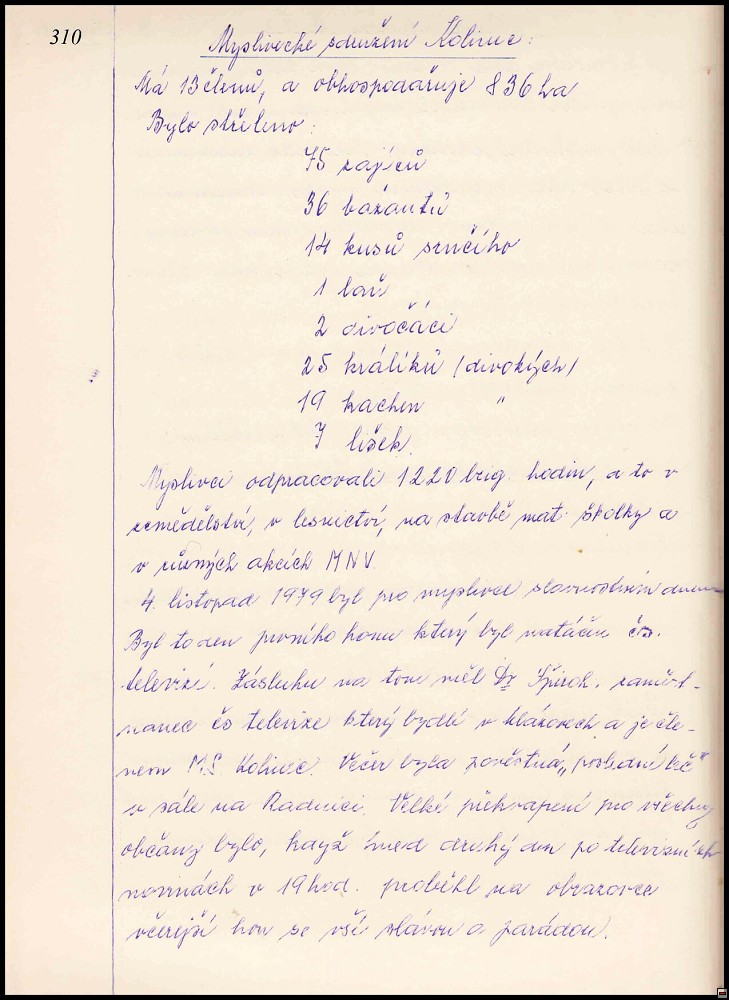 310
Myslivecké sdružení Kolinec:
Má 13 členů, a obhospodařuje 836 ha
Bylo střeleno:
75 zajíců
36 bažantů
14 kusů srnčího
1 laň
2 divočáci
25 králíků /divokých/
19 kachen "
7 lišek.
Myslivci odpracovali 1220 brig. hodin, a to v
zemědělství, v lesnictví, na stavbě mat. školky a
v různých akcích MNV.
4. listopad 1979 byl pro myslivce slavnostním dnem
Byl to den prvního honu který byl natáčen čs.
televizí. Zásluhu na tom měl Dr. , zaměst-
nanec čs televize který bydlí v a je čle-
nem MS Kolinec. Večer byla pověstná „poslední leč"
v sále na Radnici. Velké překvapení pro všechny
občany bylo, když hned druhý den po televizních
novinách v 19 hod. proběhl na obrazovce
včerejší hon se vší slávou a parádou.